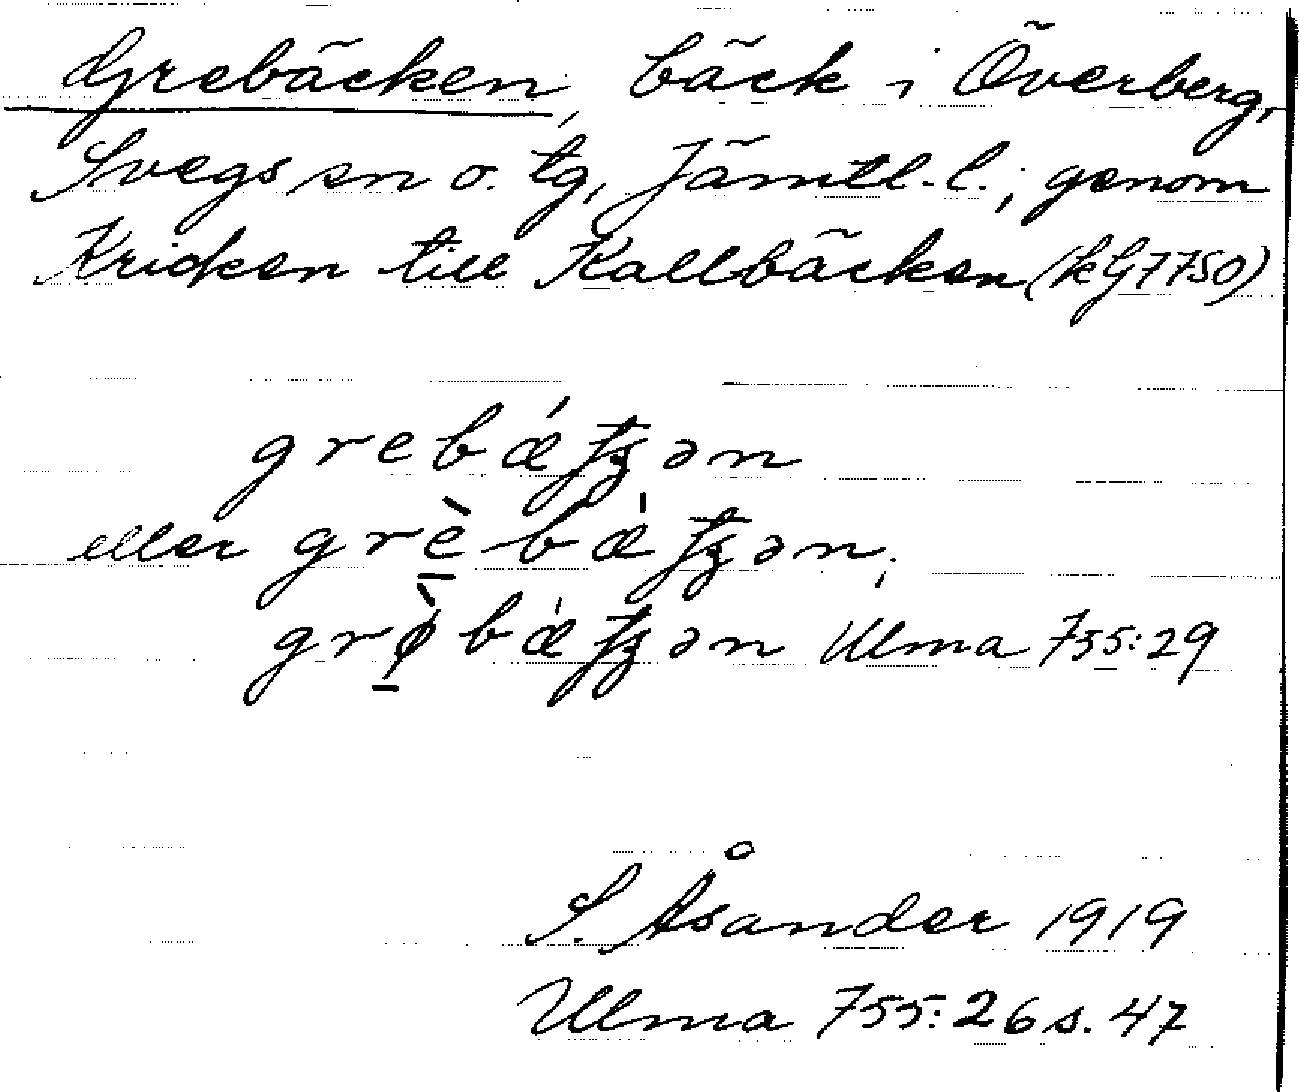 Grebäcken, bäck i Överberg,
Svegs sn o. tg, Jämtl. l.; genom
Kricken till Kallbäcken (kG7750)
eller
Ulma 755:29
S. Åsander 1919
Ulma 755:26 s. 47